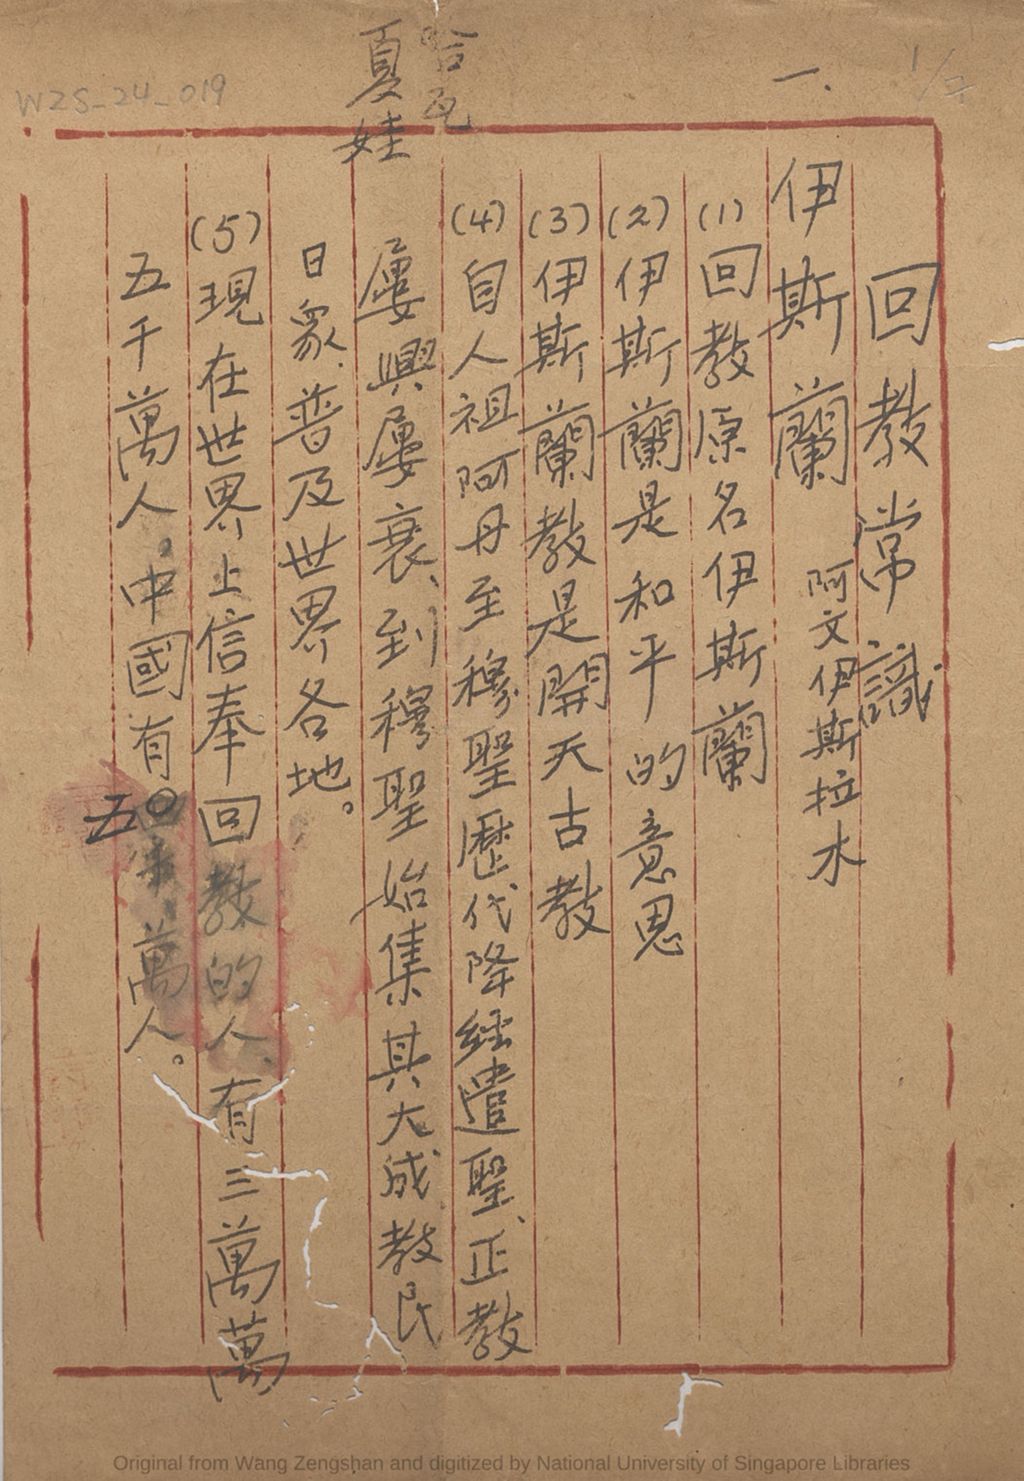 WZS_24_019
一.
回教常識
伊斯蘭 阿文伊斯拉水
(1)回教原名伊斯蘭
(2)伊斯蘭是和平的意思
(3)伊斯蘭教是開天古教
哈瓦
夏娃
(4)自人祖阿丹至穆聖歷代降經遣聖、正教
屢興屢衰、到穆聖始集其大成教民
日眾、普及世界各地。
(5)現在世界上信奉回教的人、有三萬萬
五千萬人。中國有五萬人。
Original from Wang Zengshan and digitized by National University of Singapore Libraries